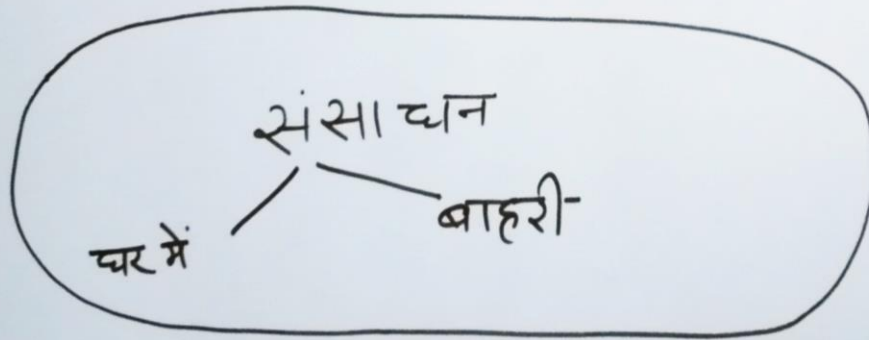 संसाधन
घर में
बाहरी